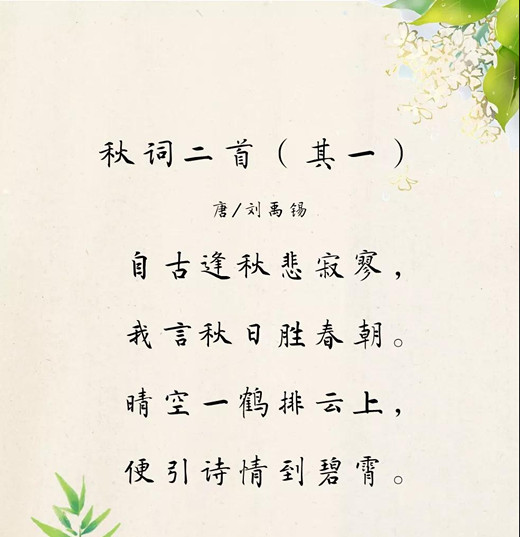 秋词二首（其一）
唐/刘禹锡
自古逢秋悲寂寥，
我言秋日胜春朝。
晴空一鹤排云上，
便引诗情到碧霄。